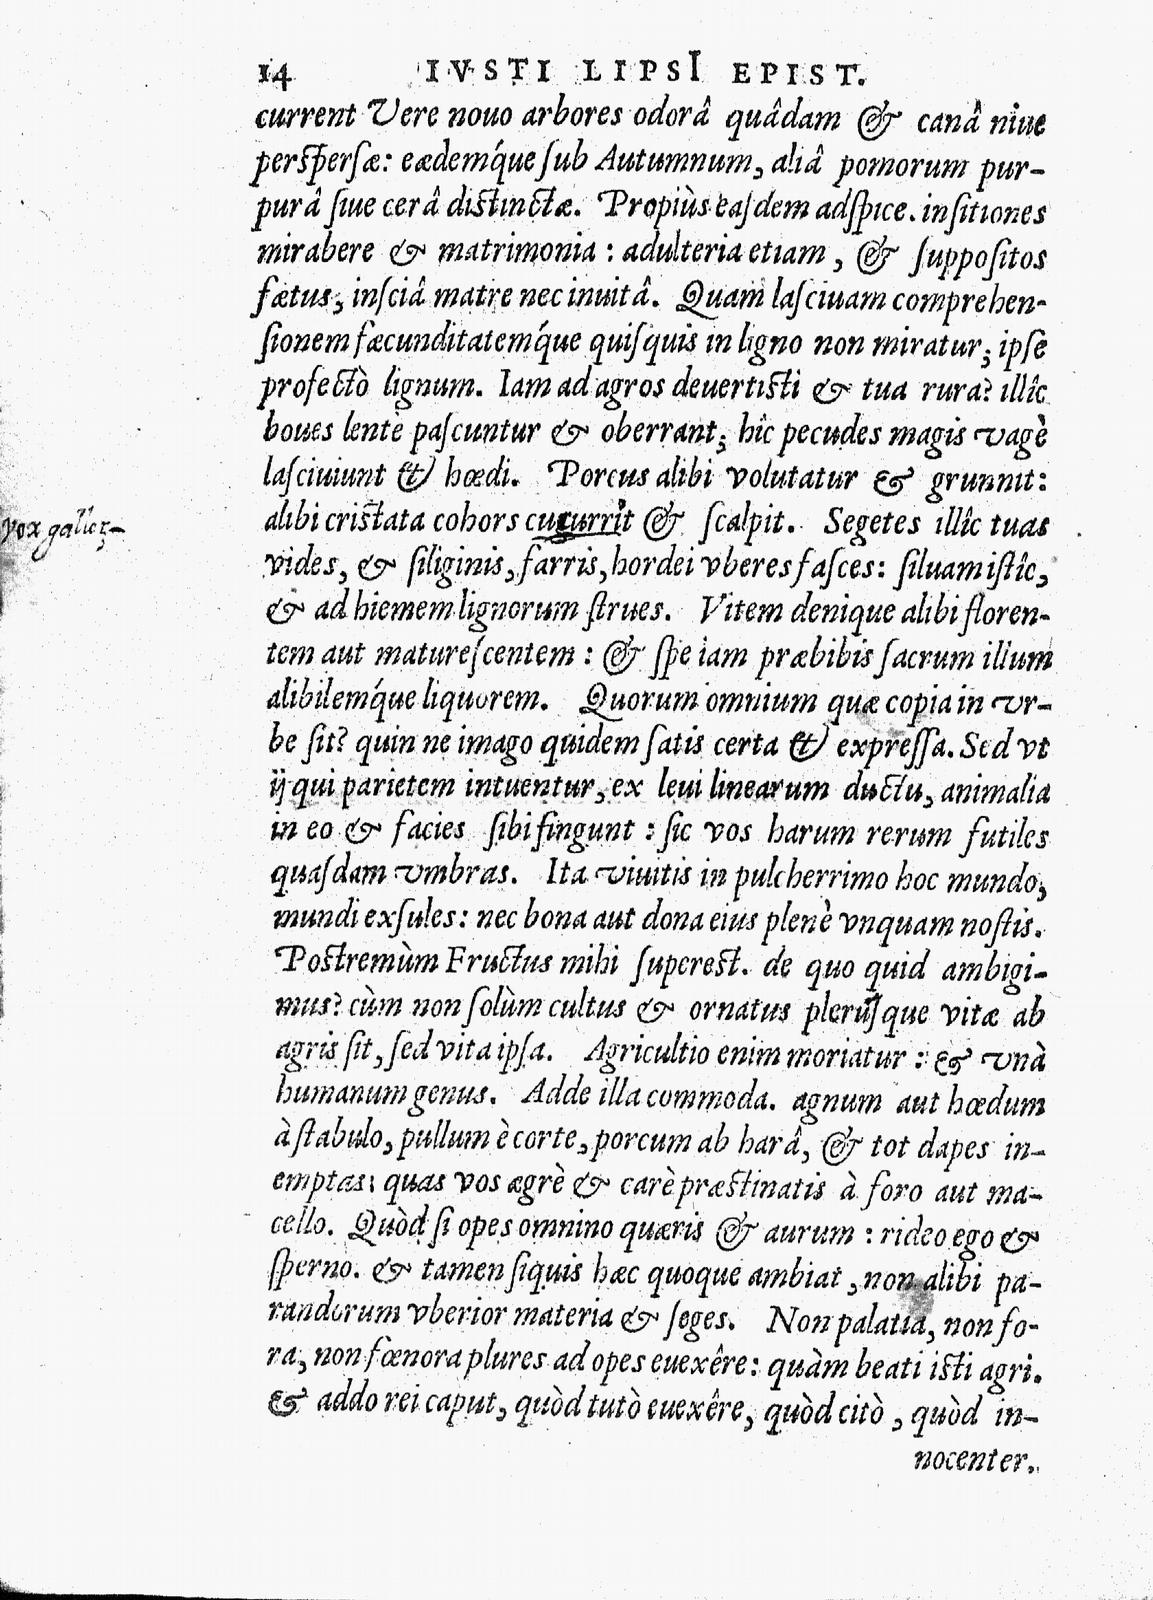 14 IVSTI LIPSI EPIST.
current Vere nouo arbores odorâ quâdam & canâ niue
perſperſæ: eædemq́ue ſub Autumnum, aliâ pomorum pur-
purâ ſiue cerâ diſtinctæ. Propiùs eaſdem adſpice. inſitiones
mirabere & matrimonia: adulteria etiam, & ſuppoſitos
fætus, inſciâ matre nec inuitâ. Quam laſciuam comprehen-
ſionem fæcunditatemq́ue quiſquis in ligno non miratur; ipſe
profectò lignum. Iam ad agros deuertiſti & tua rura? illîc
boues lentè paſcuntur & oberrant; hîc pecudes magis vagè
laſciuiunt & hœdi. Porcus alibi volutatur & grunnit:
alibi criſtata cohors cucurrit & ſcalpit. Segetes illîc tuas
vox
vides, & ſiliginis, farris, hordei vberes faſces: ſiluam iſtîc,
& ad hiemem lignorum ſtrues. Vitem denique alibi floren-
tem aut matureſcentem: & ſpe iam præbibis ſacrum illum
alibilemq́ue liquorem. Quorum omnium quæ copia in vr-
be ſit? quin ne imago quidem ſatis certa & expreſſa. Sed vt
ij qui parietem intuentur, ex leui linearum ductu, animalia
in eo & facies ſibi fingunt: ſic vos harum rerum futiles
quaſdam vmbras. Ita viuitis in pulcherrimo hoc mundo,
mundi exſules: nec bona aut dona eius plenè vnquam noſtis.
Poſtremùm Fructus mihi ſupereſt. de quo quid ambigi-
mus? cùm non ſolùm cultus & ornatus pleriſque vitæ ab
agris ſit, ſed vita ipſa. Agricultio enim moriatur: & vnà
humanum genus. Adde illa commoda. agnum aut hœdum
à ſtabulo, pullum è corte, porcum ab harâ, & tot dapes in-
emptas; quas vos ægrè & carè præſtinatis à foro aut ma-
cello. Quòd ſi opes omnino quæris & aurum: rideo ego &
ſperno. & tamen ſiquis hæc quoque ambiat, non alibi pa-
randorum vberior materia & ſeges. Non palatia, non fo-
ra, non fœnora plures ad opes euexêre: quàm beati iſti agri.
& addo rei caput, quòd tutò euexêre, quòd citò, quòd in-
nocenter.